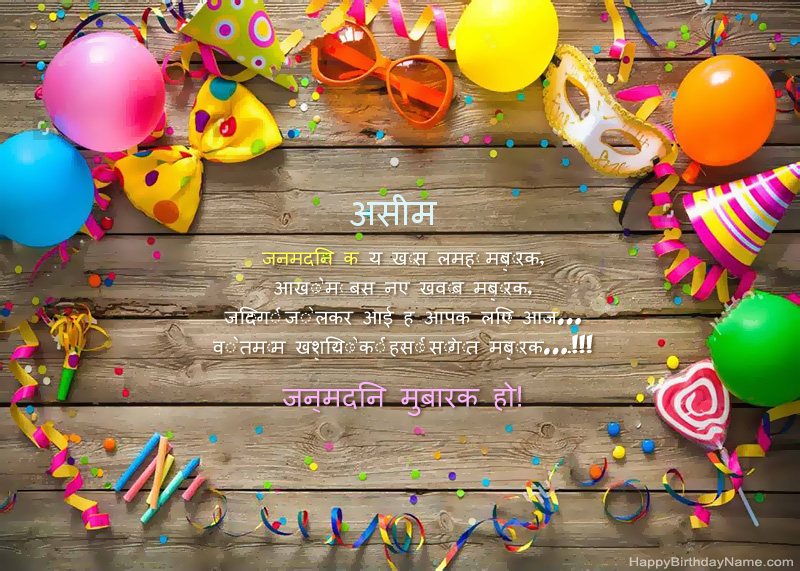 असीम
जन्मदिन के ये ख़ास लम्हें मुबारक,
आँखों में बसे नए ख्वाब मुबारक,
जिंदगी जो लेकर आई है आपके लिए आज...
वो तमाम खुशियों की हंसीं सौगात मुबारक...!!!
जन्मदिन मुबारक हो!
HappyBirthdayName.com